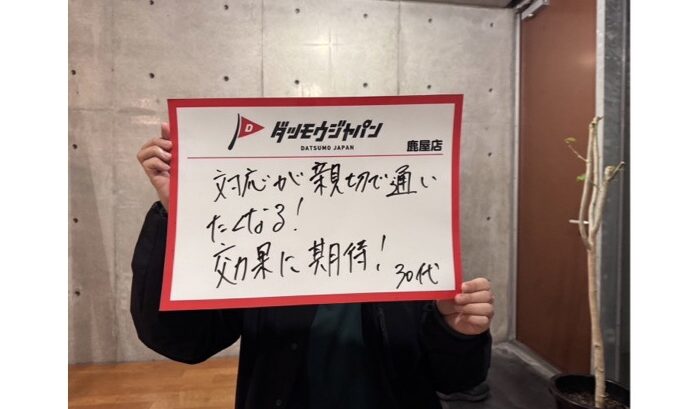 D
ダツモウジャパン
DATSUMO JAPAN
鹿屋店
対応が親切で通い
たくなる!
効果に期待!
30代